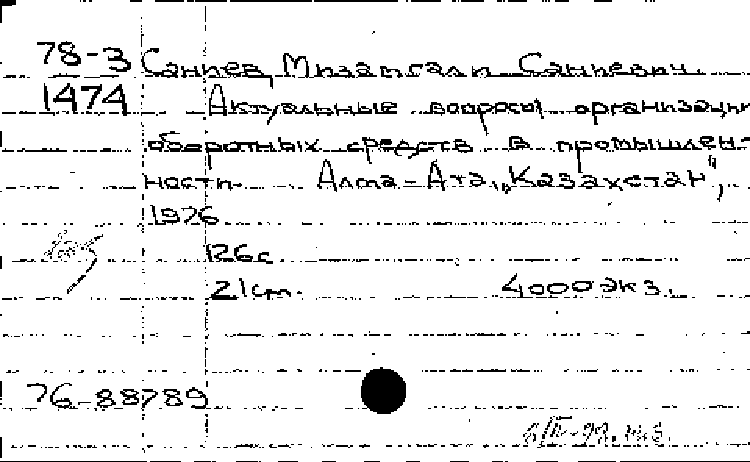 78-3 Саниев, Мизамгали Саниевич.
1474 Актуальные вопросы организации
оборотных средств в промышлен-
ности. Алма-Ата, „Казахстан",
1976
126 с.
21 cm. 4000 экз.
76-88789